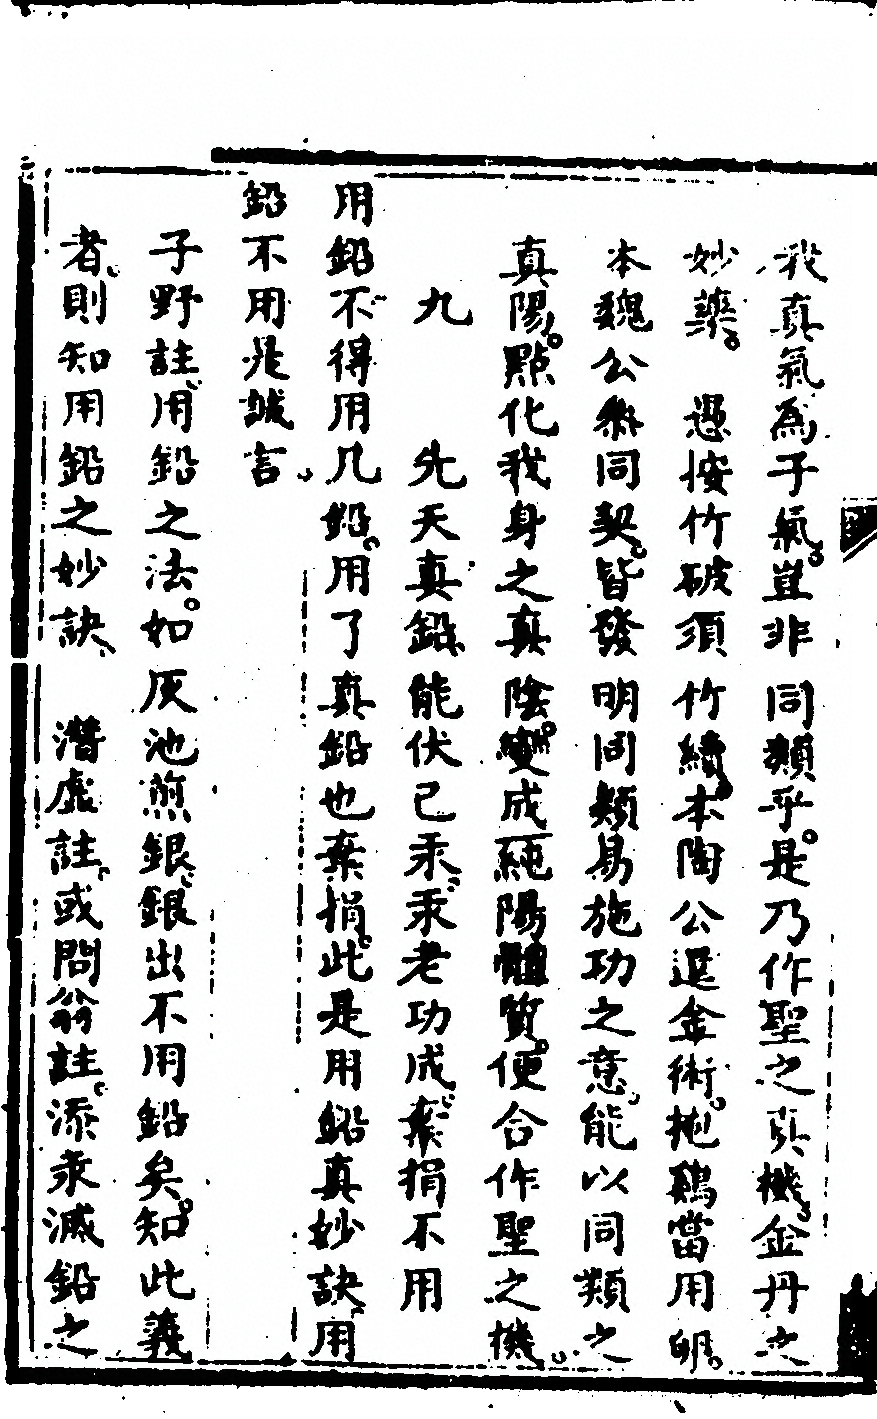 我真氣為子氣豈非同類乎是乃作聖之真機金丹之
妙藥　憑按竹破須竹續本陶公還金術抱鷄當用卵
本魏公叅同契皆發明同類易施功之意能以同類之
真陽點化我身之真陰變成純陽體質便合作聖之機
九　先天真鉛能伏己汞汞老功成棄捐不用
用鉛不得用凡鉛用了真鉛也棄捐此是用鉛真妙訣用
鉛不用是誠言
子野註用鉛之法如灰池煎銀銀出不用鉛矣知此義
者則知用鉛之妙訣　潛虛註或問翁註添汞減鉛之